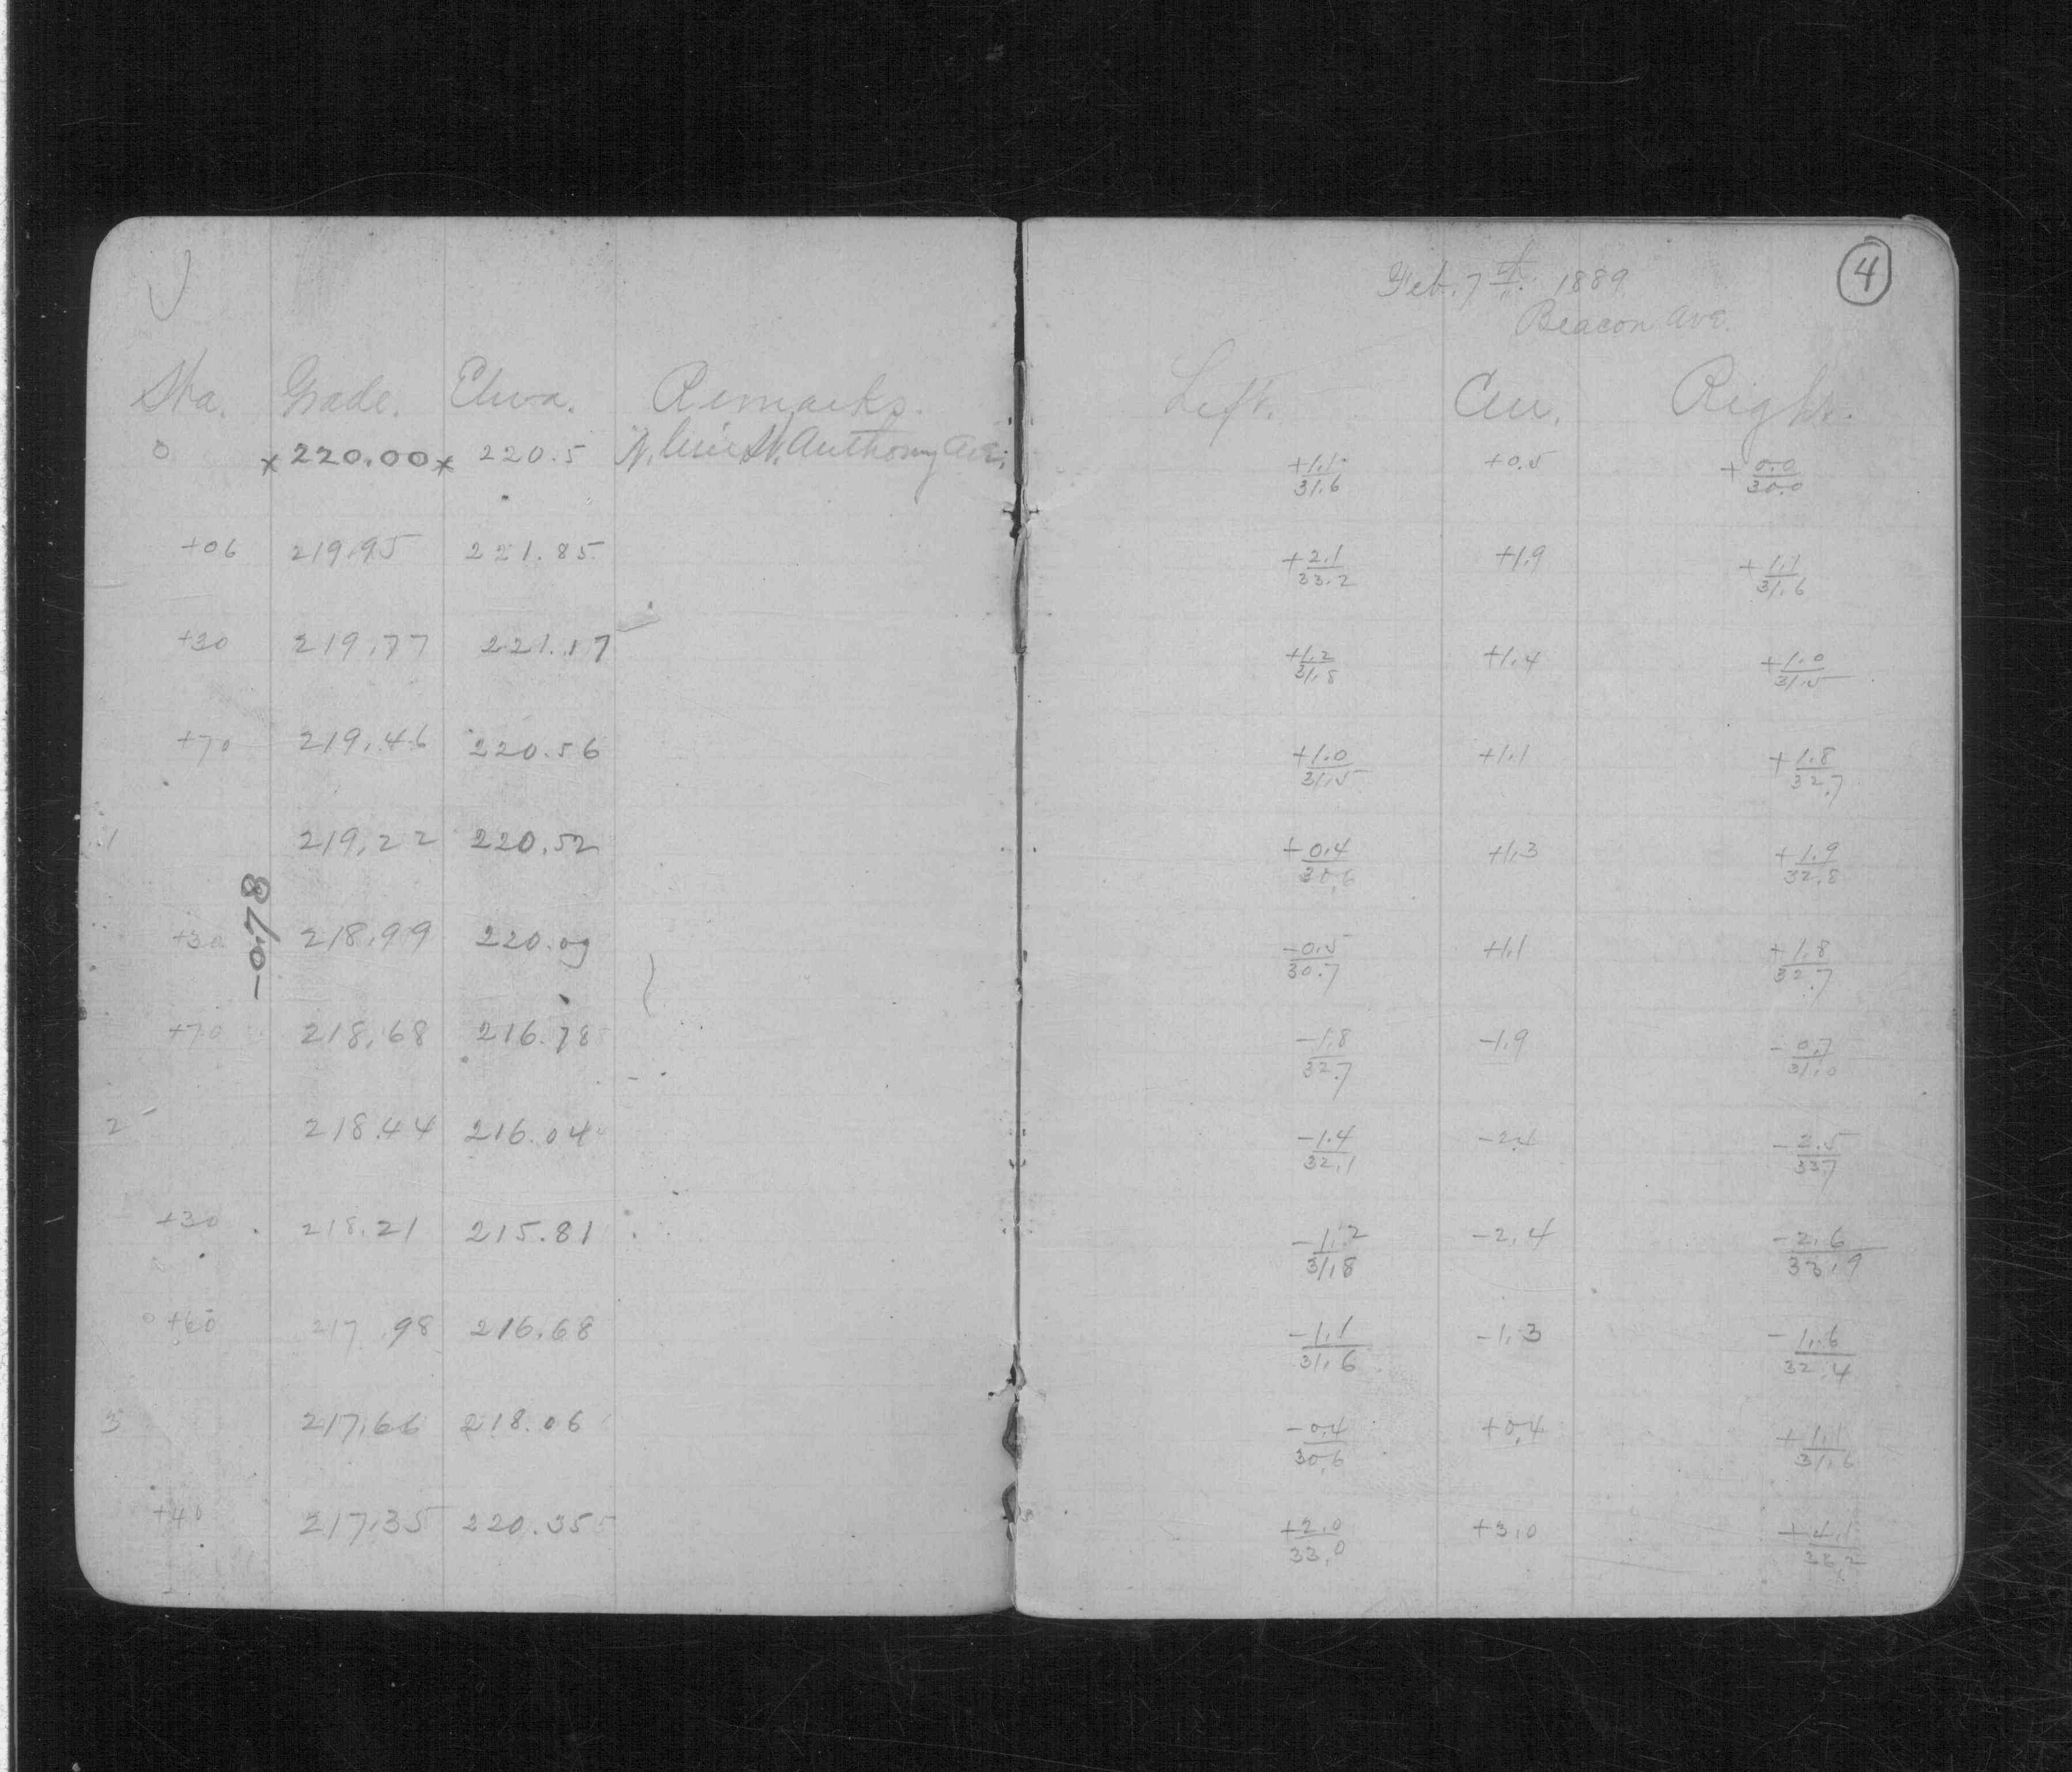 4
Feb. 7th 1889
Beacon Ave.
Sta. Grade. Eleva. Remarks. Left. Cen. Right.
0 x 220.00 x 220.5 N. line St. Anthony Ave. +1.1/31.6 +0.5 +0.0/30.0
+06 219.95 221.85 +2.1/33.2 +1.9 +1.1/31.6
+30 219.77 221.17 +1.2/31.8 +1.4 +1.0/31.5
+70 219.46 220.56 +1.0/31.5 +1.1 +1.8/32.7
1 219.22 220.52 +0.4/30.6 +1.3 +1.9/32.8
-0.78
+30 218.99 220.09 -0.5/30.7 +1.1 +1.8/32.7
+70 218.68 216.78 -1.8/32.7 -1.9 -0.7/31.0
2 218.44 216.04 -1.4/32.1 -2.4 -2.5/33.7
+30 218.21 215.81 -1.2/31.8 -2.4 -2.6/33.9
+60 217.98 216.68 -1.1/31.6 -1.3 -1.6/32.4
3 217.66 218.06 -0.4/30.6 +0.4 +1.1/31.6
+40 217.35 220.35 +2.0/33.0 +3.0 +4.1/36.2